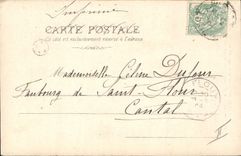 Imprimé
CARTE POSTALE
Ce côté est exclusivement réservé à l'adresse
Mademoiselle Céline Dufour
Faubourg de Saint-Flour
Cantal